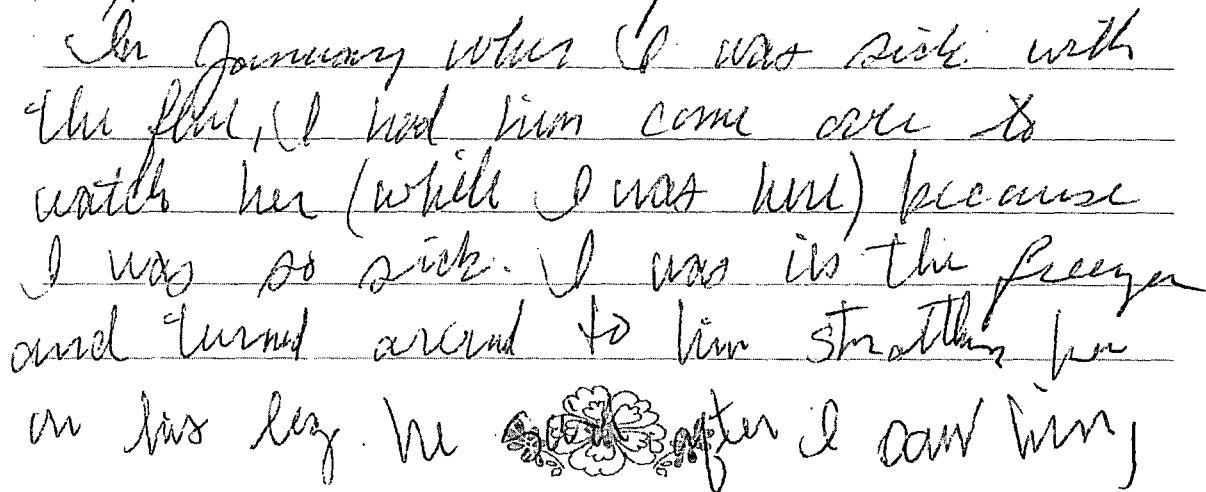 In January when I was sick with
the flue, I had him come over to
watch her (while I was here) because
I was so sick. I was in the freezer
and turned around to him strattling her
on his leg. he after I saw him,